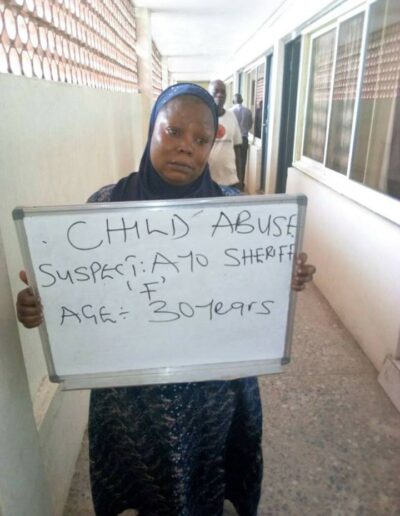 CHILD ABUSE
SUSPECT: AYO SHERIFF
'F'
AGE:- 30 years